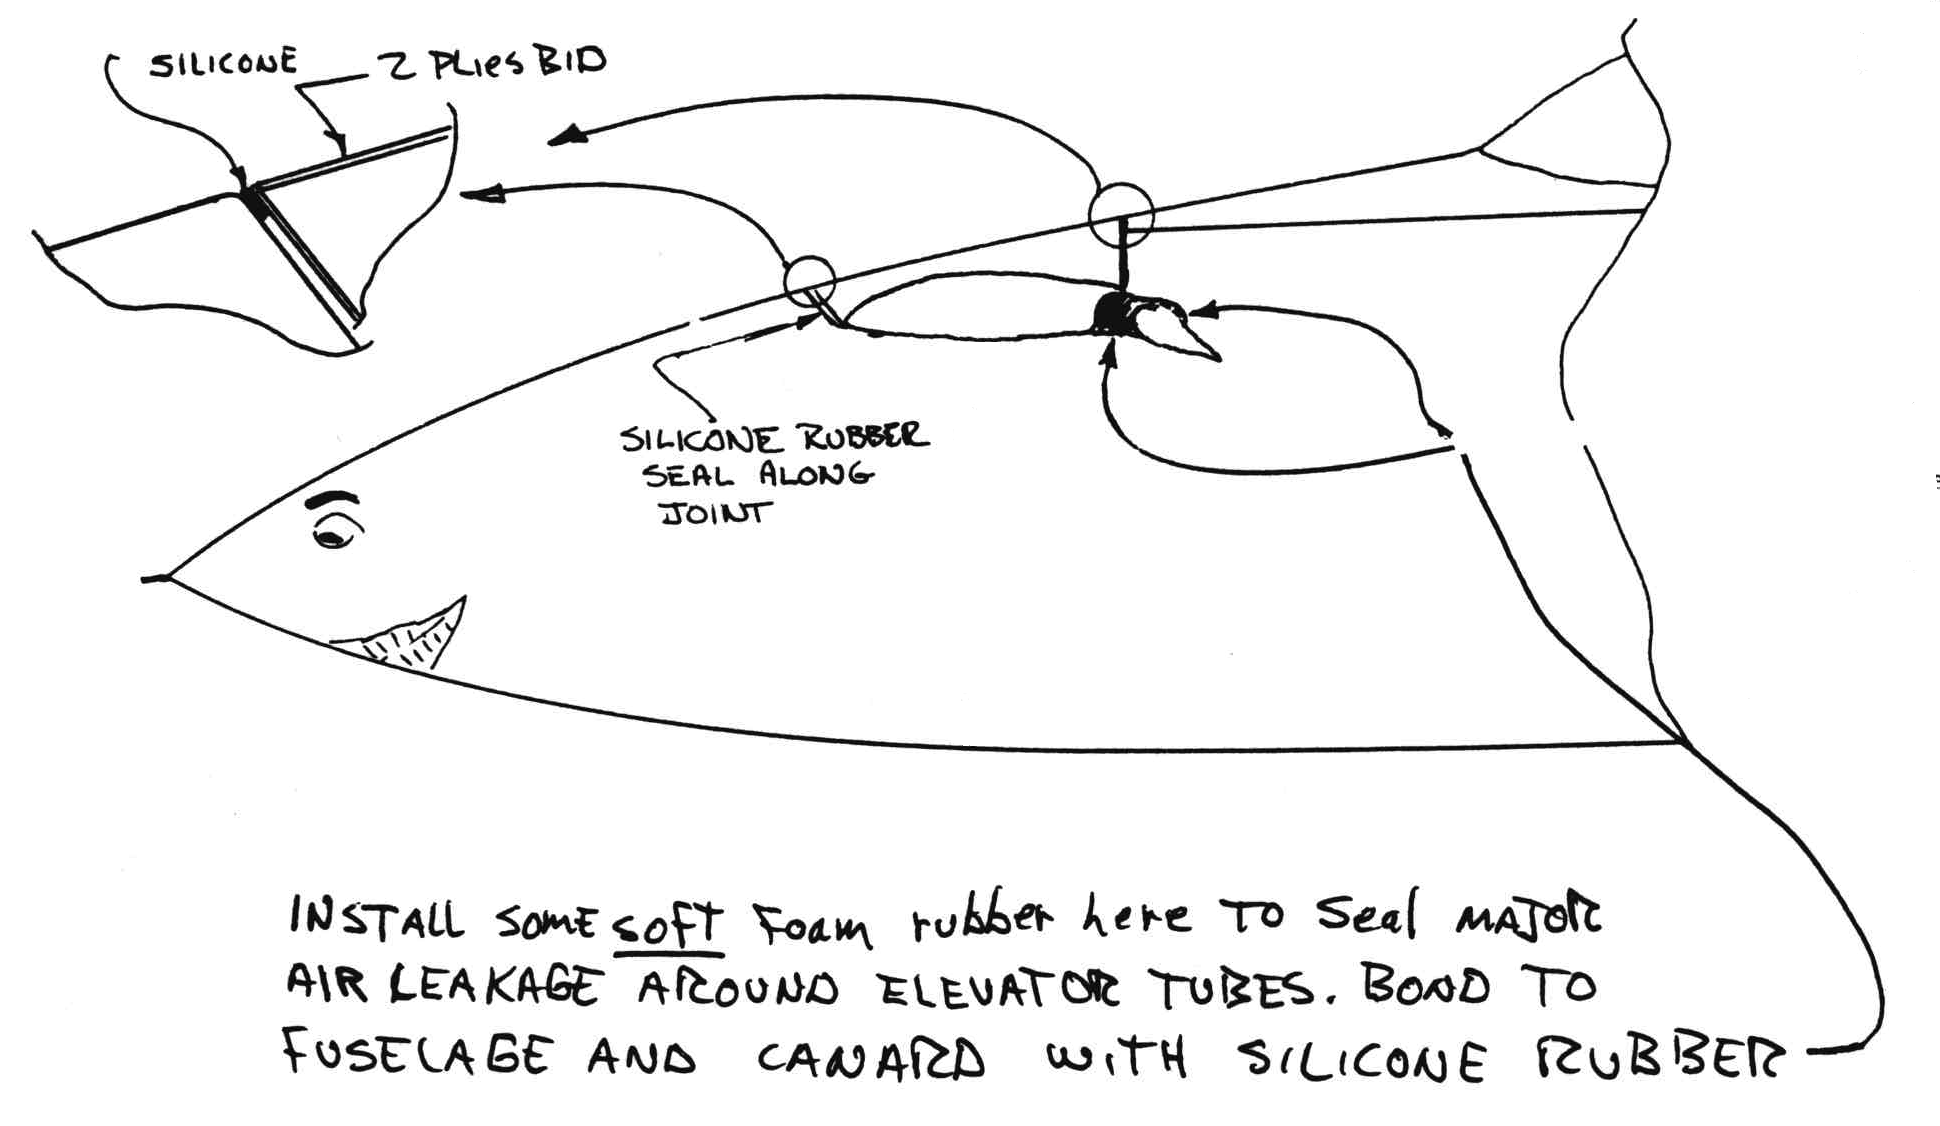 SILICONE
2 PLIES BID
SILICONE RUBBER
SEAL ALONG
JOINT
INSTALL SOME SOFT FOAM rubber here TO SEAL MAJOR
AIR LEAKAGE AROUND ELEVATOR TUBES. BOND TO
FUSELAGE AND CANARD WITH SILICONE RUBBER